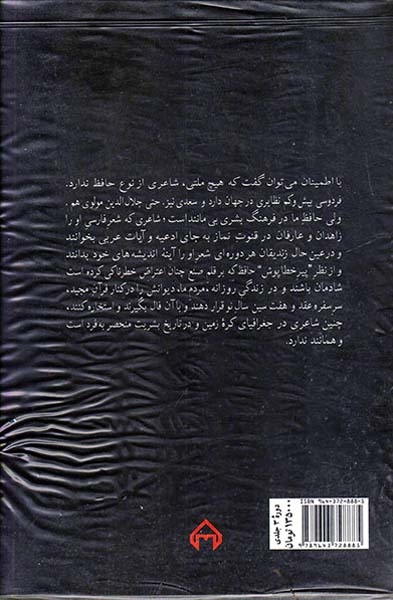 با اطمینان می‌توان گفت که هیچ ملتی، شاعری از نوع حافظ ندارد.
فردوسی بیش و کم نظایری در جهان دارد و سعدی نیز. حتی جلال‌الدین مولوی هم.
ولی حافظِ ما در فرهنگ بشری بی‌مانند است، شاعری که شعر فارسی او را
زاهدان و عارفان در قنوتِ نماز به جای ادعیه و آیات عربی بخوانند
و در عین حال زندیقان هر دوره‌ای شعر او را آینهٔ اندیشه‌های خود بدانند
و از نظرِ "پیر خطاپوش" حافظ که بر قلم صنع چنان اعتراض خطرناکی کرده است
شادمان باشند و در زندگی روزانه، مردم ما، دیوانش را در کنار قرآن مجید،
سر سفرهٔ عقد و هفت سین سال نو قرار دهند و با آن فال بگیرند و استخاره کنند،
چنین شاعری در جغرافیای کرهٔ زمین و در تاریخ بشریت منحصر به فرد است
و همانند ندارد.
ISBN 964-372-888-1
9 789643 728881
دورهٔ ۳ جلدی
۱۳۵۰۰۰ تومان